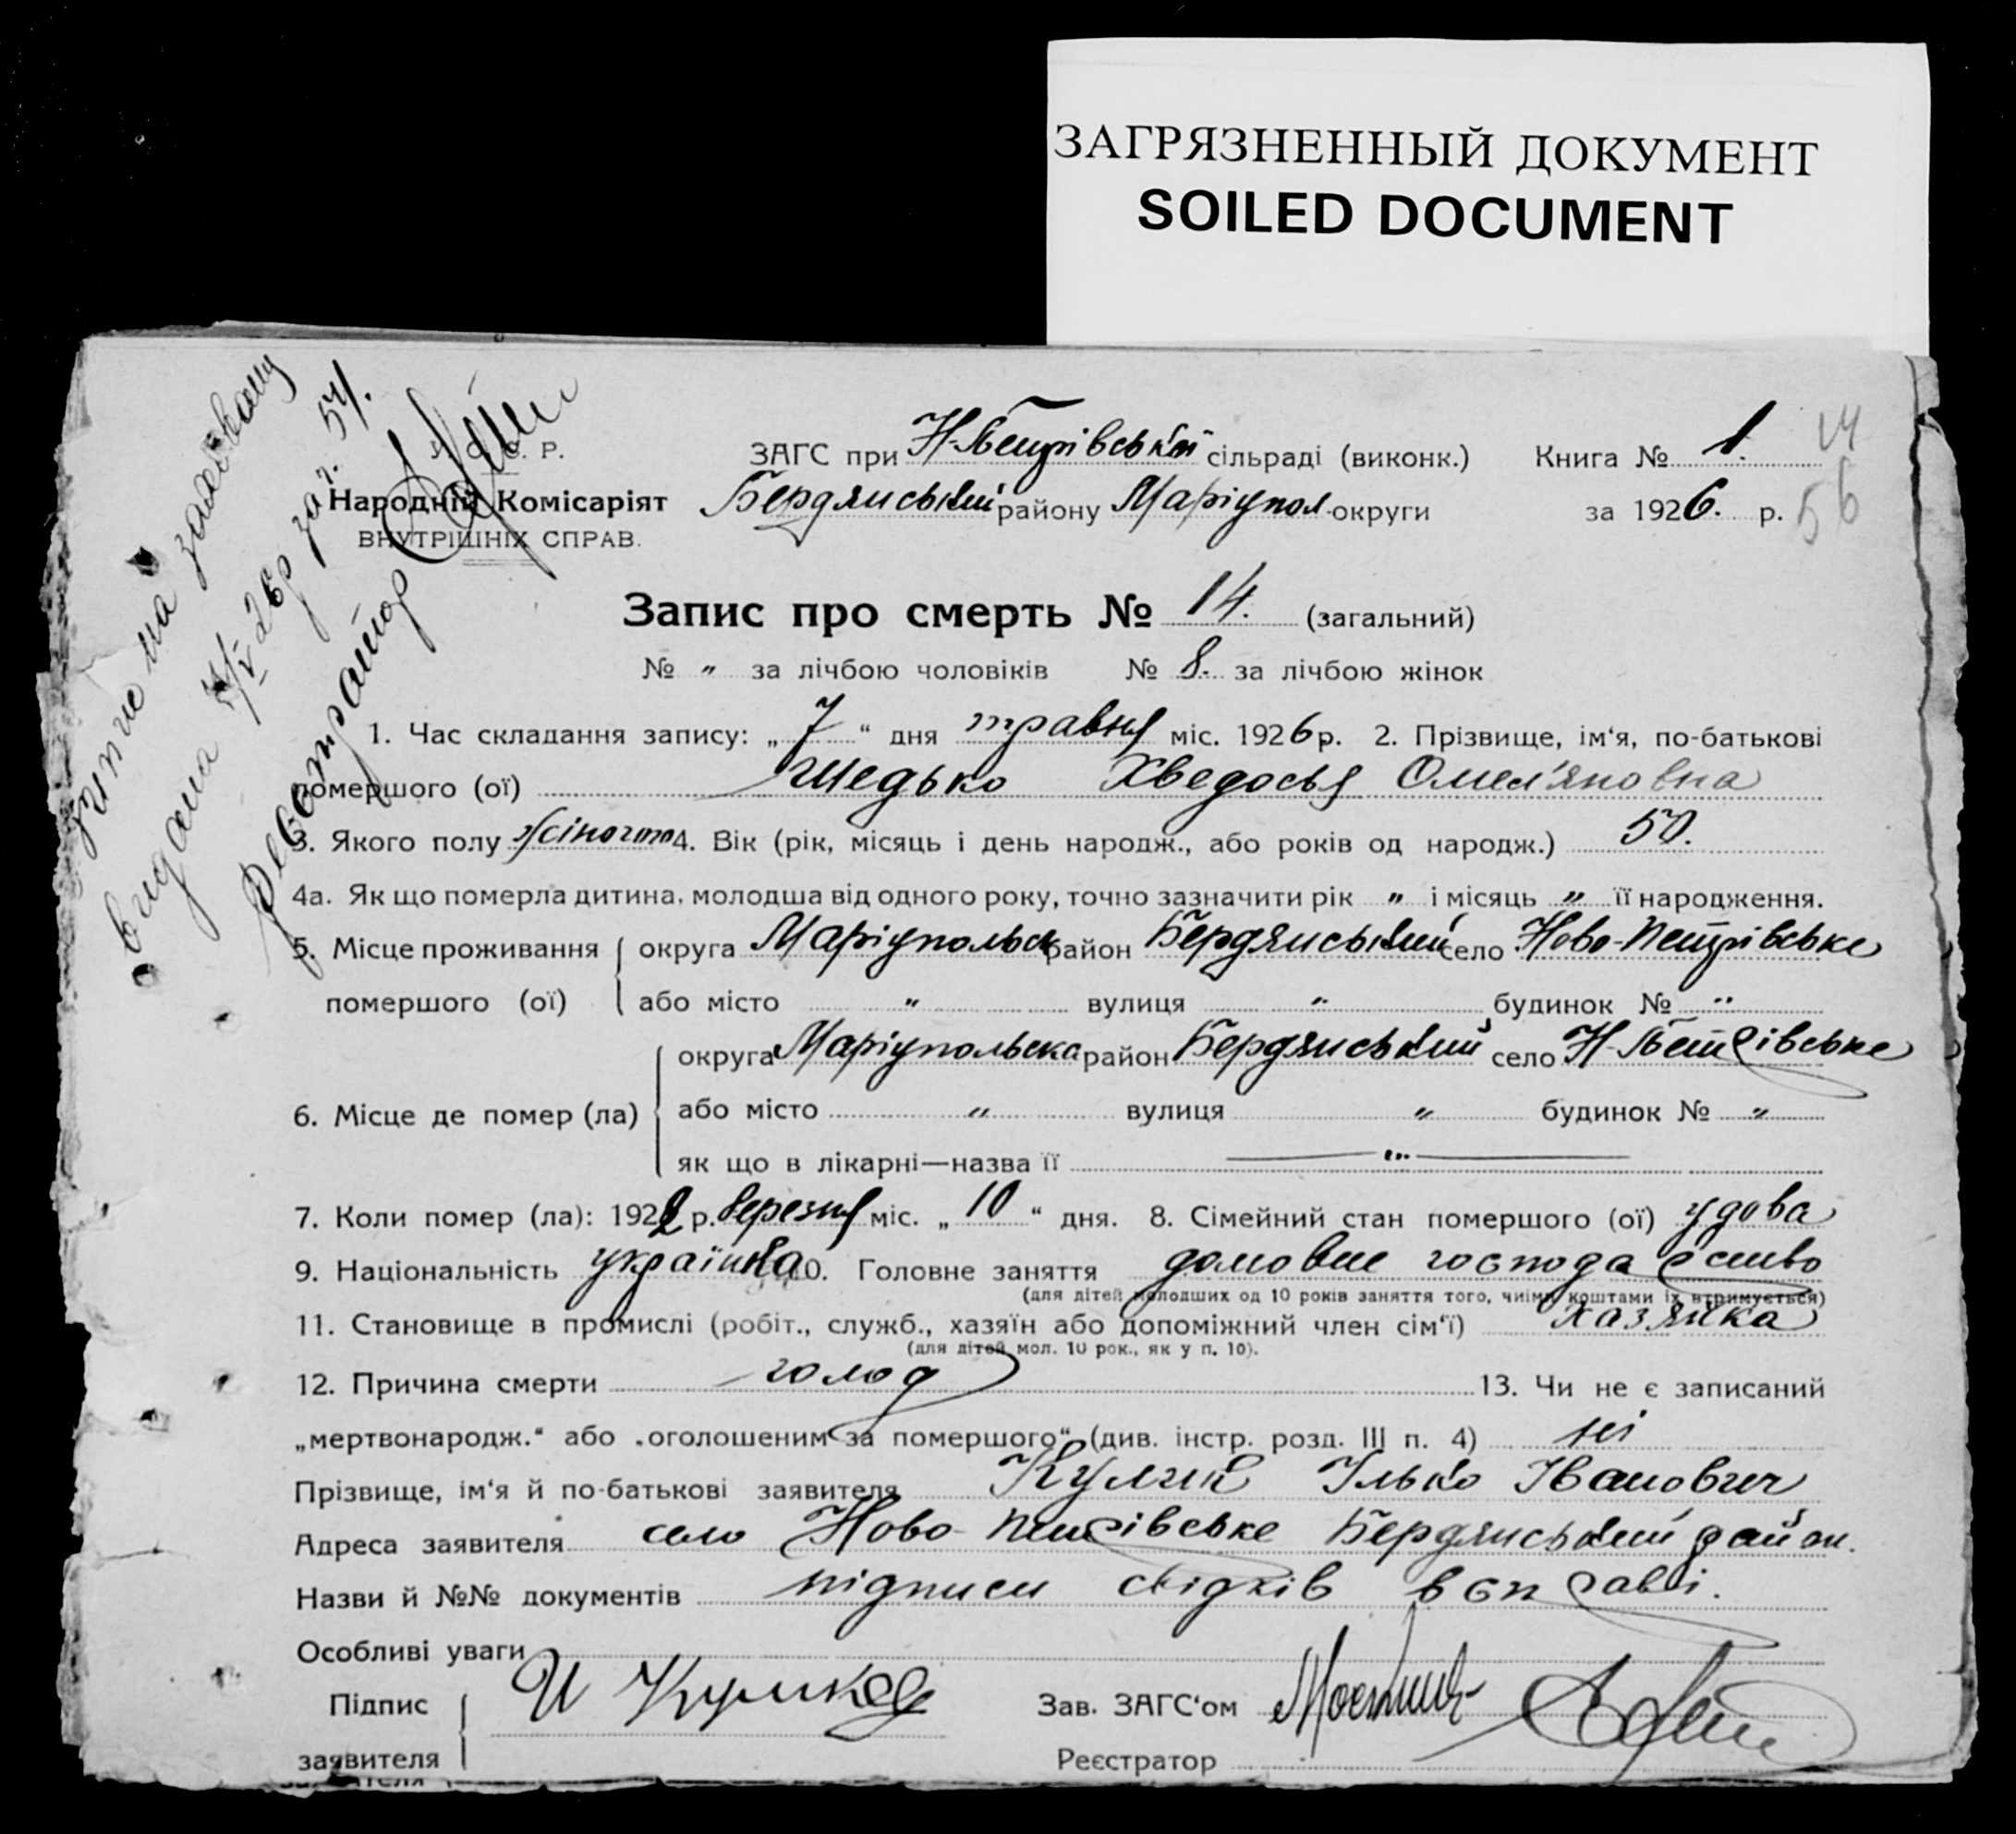 ЗАГРЯЗНЕННЫЙ ДОКУМЕНТ
SOILED DOCUMENT
У. С. С. Р.
Народній Комісаріят
ВНУТРІШНІХ СПРАВ.
ЗАГС при Н-Петрівській сільраді (виконк.) Книга № 1. 14
Бердянський району Маріупол. округи за 1926. р. 56
видана 7/V 26р за № 54.
Реєстратор
Запис про смерть № 14. (загальний)
№ " за лічбою чоловіків № 8. за лічбою жінок
1. Час складання запису: „ 7 “ дня травня міс. 1926 р. 2. Прізвище, ім‘я, по-батькові
помершого (ої) Шедько Хведосья Омел'яновна
3. Якого полу жіночого 4. Вік (рік, місяць і день народж., або років од народж.) 50.
4а. Як що померла дитина, молодша від одного року, точно зазначити рік " і місяць " її народження.
5. Місце проживання округа Маріупольськ район Бердянський село Ново-Петрівське
помершого (ої) або місто " вулиця " будинок № "
округа Маріупольська район Бердянський село Н-Петрівське
6. Місце де помер (ла) або місто " вулиця " будинок № "
як що в лікарні—назва її — " —
7. Коли помер (ла): 1922 р. березня міс. „ 10 “ дня. 8. Сімейний стан помершого (ої) удова
9. Національність українка 10. Головне заняття домовне господарство
(для дітей молодших од 10 років заняття того, чиїми коштами їх втримується)
11. Становище в промислі (робіт., служб., хазяїн або допоміжний член сім‘ї) хазяйка
(для дітей мол. 10 рок., як у п. 10).
12. Причина смерти голод 13. Чи не є записаний
„мертвонародж.“ або „оголошеним за помершого“ (див. інстр. розд. III п. 4) ні
Прізвище, ім‘я й по-батькові заявителя Кулик Ілько Іванович
Адреса заявителя село Ново-Петрівське Бердянський район.
Назви й №№ документів підписи свідків в справі.
Особливі уваги
Підпис
заявителя
Зав. ЗАГС‘ом
Реєстратор